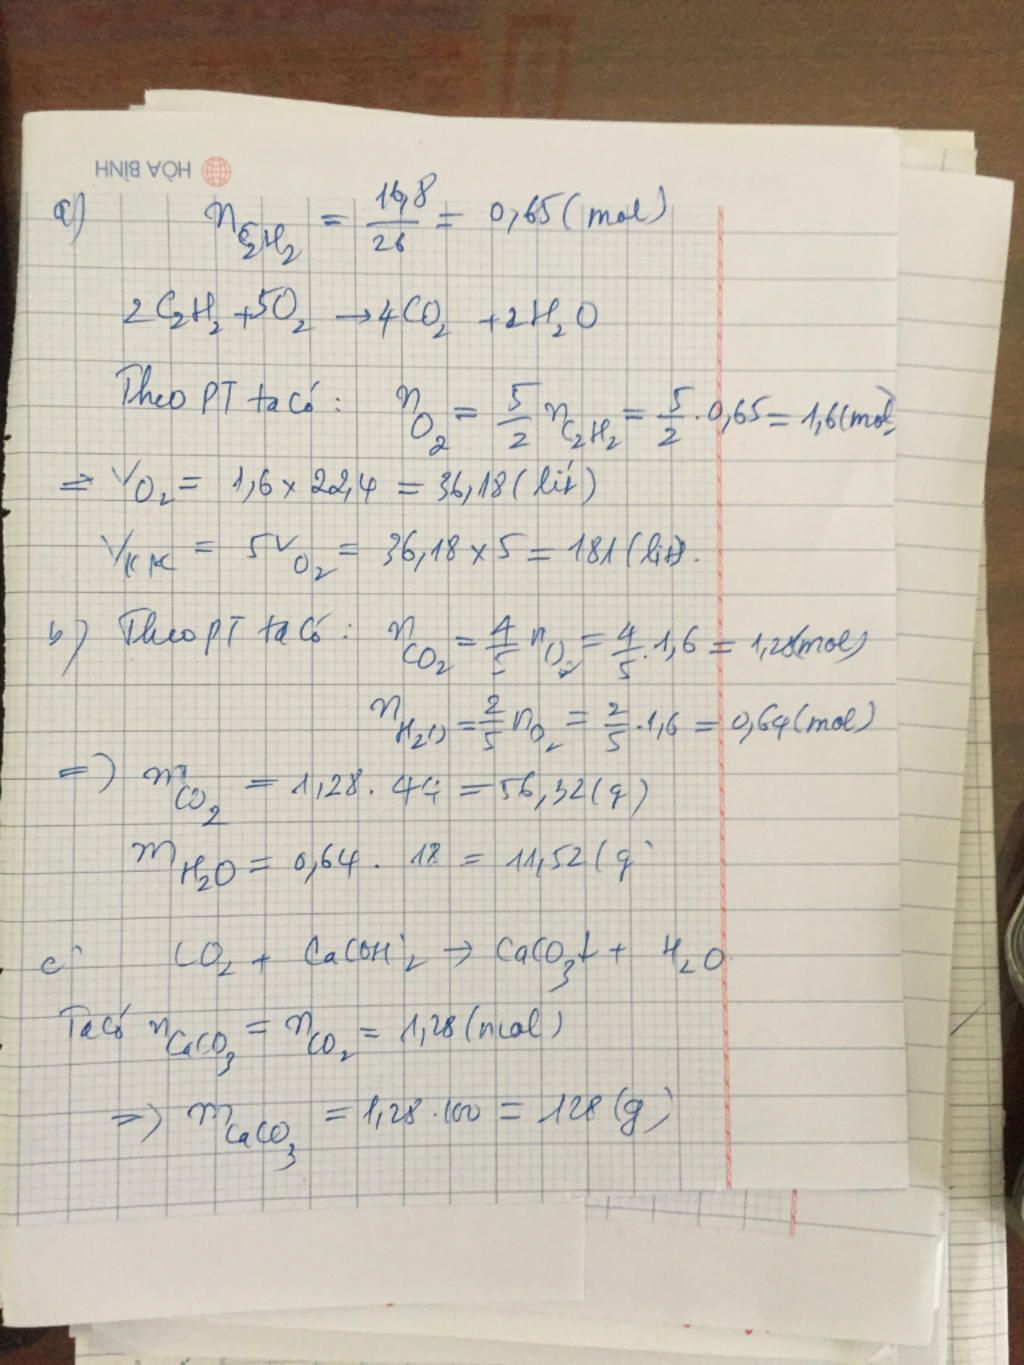 HÒA BÌNH
a) n C₂H₂ = 16,8/26 = 0,65 (mol)
2C₂H₂ + 5O₂ → 4CO₂ + 2H₂O
Theo PT ta có: n O₂ = 5/2 n C₂H₂ = 5/2 . 0,65 = 1,6 (mol)
⇒ V O₂ = 1,6 x 22,4 = 36,18 (lít)
V KK = 5 V O₂ = 36,18 x 5 = 181 (lít).
b) Theo PT ta có: n CO₂ = 4/5 n O₂ = 4/5 . 1,6 = 1,28 (mol)
n H₂O = 2/5 n O₂ = 2/5 . 1,6 = 0,64 (mol)
⇒ m CO₂ = 1,28 . 44 = 56,32 (g)
m H₂O = 0,64 . 18 = 11,52 (g)
c) CO₂ + Ca(OH)₂ → CaCO₃↓ + H₂O
Ta có n CaCO₃ = n CO₂ = 1,28 (mol)
⇒ m CaCO₃ = 1,28 . 100 = 128 (g)